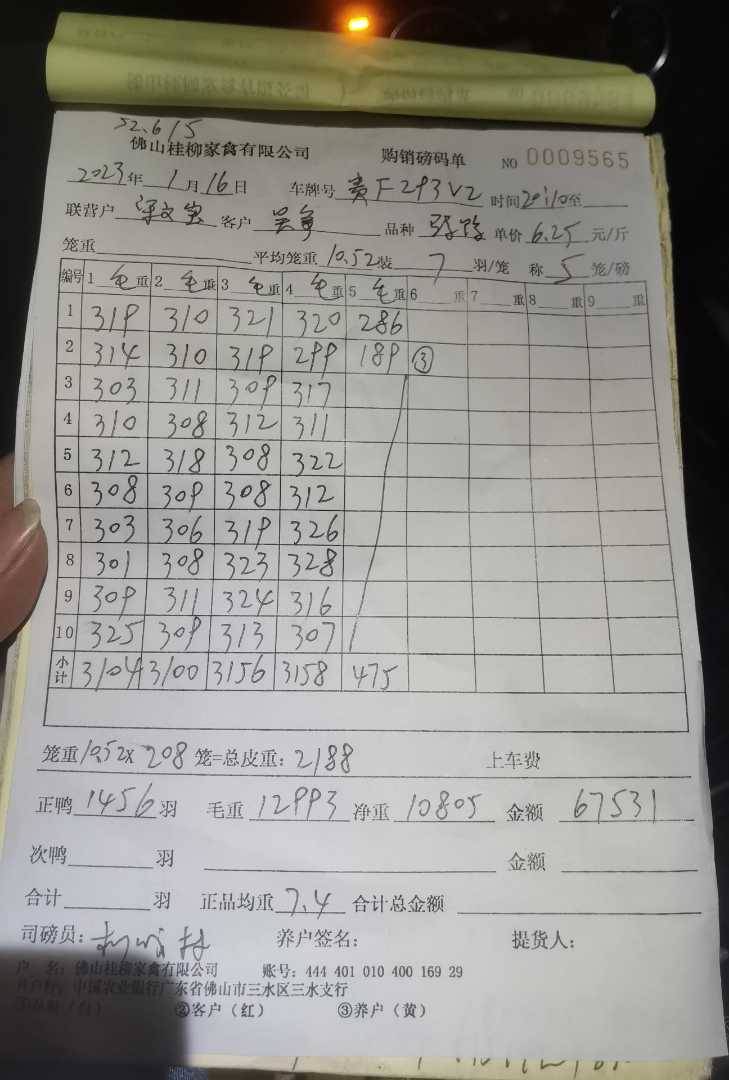 52.615
佛山桂柳家禽有限公司 购销磅码单 NO 0009565
2023年 1月 16日 车牌号 贵F293V2 时间20:10至
联营户 客户 品种 单价 6.25 元/斤
笼重 平均笼重 10.52 装 7 羽/笼 称 5 笼/磅
编号 1 毛重 2 毛重 3 毛重 4 毛重 5 毛重 6 重 7 重 8 重 9 重
1 319 310 321 320 286
2 314 310 319 299 189 ③
3 303 311 309 317
4 310 308 312 311
5 312 318 308 322
6 308 309 308 312
7 303 306 319 326
8 301 308 323 328
9 309 311 324 316
10 325 309 313 307
小计 3104 3100 3156 3158 475
笼重 10.52X 208 笼=总皮重: 2188 上车费
正鸭 1456 羽 毛重 12993 净重 10805 金额 67531
次鸭 羽 金额
合计 羽 正品均重 7.4 合计总金额
司磅员: 养户签名: 提货人:
户 名: 佛山桂柳家禽有限公司 账号: 444 401 010 400 169 29
开户行: 中国农业银行广东省佛山市三水区三水支行
②客户(红) ③养户(黄)